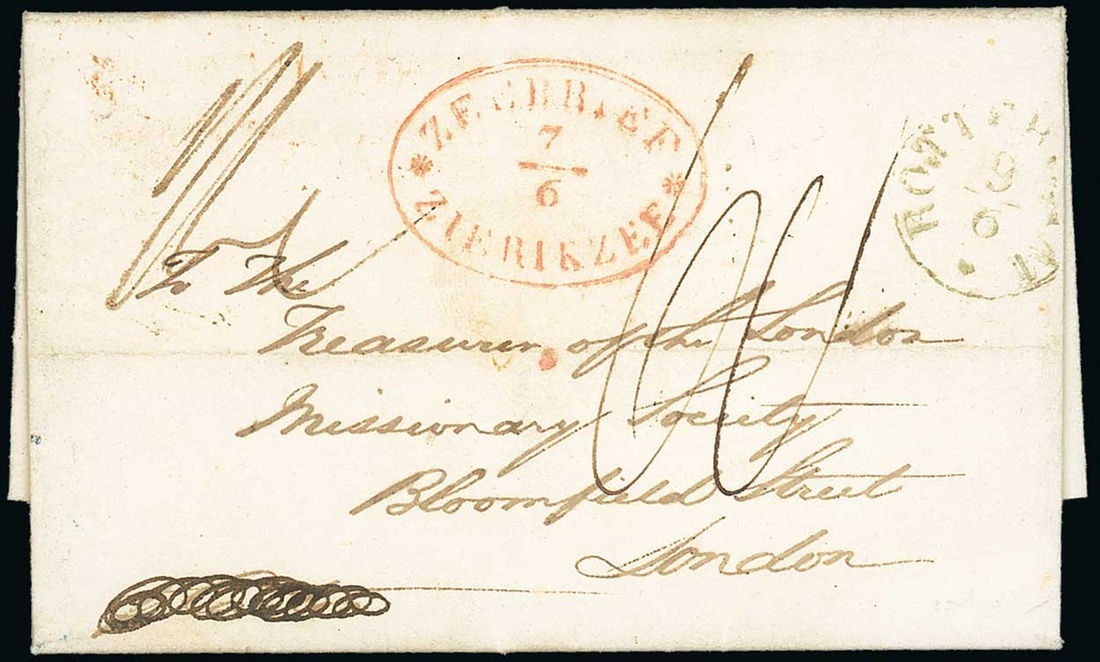 ZEEBRIEF
7
6
ZIERIKZEE
To The
Treasurer of the London
Missionary Society
Bloomfield Street
London